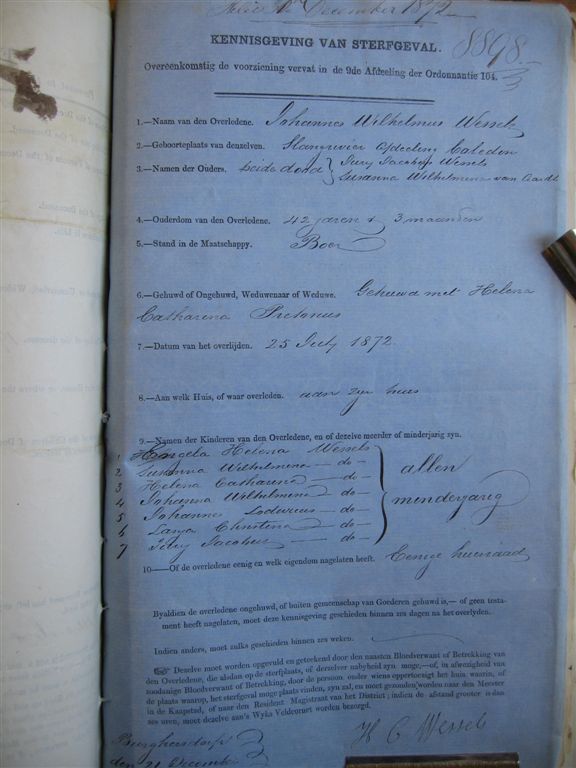 December 1872
8898
KENNISGEVING VAN STERFGEVAL.
Overeenkomstig de voorziening vervat in de 9de Afdeeling der Ordonnantie 104.
1.—Naam van den Overledene. Johannes Wilhelmus Wessels
2.—Geboorteplaats van denzelven. Slangrivier Afdeeling Caledon
3.—Namen der Ouders. beide dood Jacobus Wessels
Susanna Wilhelmina van
4.—Ouderdom van den Overledene. 42 jaren & 3 maanden
5.—Stand in de Maatschappy. Boer
6.—Gehuwd of Ongehuwd, Weduwenaar of Weduwe. Gehuwd met Helena
Catharina Pretorius
7.—Datum van het overlijden. 25 July 1872.
8.—Aan welk Huis, of waar overleden. aan zyn huis
9.—Namen der Kinderen van den Overledene, en of dezelve meerder of minderjarig zyn.
1 Helena Wessels
2 Susanna Wilhelmina — do —
3 Helena Catharina — do —
4 Johanna Wilhelmina — do —
5 Johannes Lodevicus — do —
6 Christina — do —
7 Jacobus — do —
allen
minderjarig
10—Of de overledene eenig en welk eigendom nagelaten heeft. Eenige huisraad
Byaldien de overledene ongehuwd, of buiten gemeenschap van Goederen gehuwd is,— of geen testa-
ment heeft nagelaten, moet deze kennisgeving geschieden binnen zes dagen na het overlyden.
Indien anders, moet zulks geschieden binnen zes weken.
☞ Dezelve moet worden opgevuld en geteekend door den naasten Bloedverwant of Betrekking van
den Overledene, die alsdan op de sterfplaats, of derzelver nabyheid zyn moge,—of, in afwezigheid van
zoodanige Bloedverwant of Betrekking, door de persoon onder wiens oppertoezigt het huis waarin, of
de plaats waarop, het sterfgeval moge plaats vinden, zyn zal, en moet gezonden worden naar den Meester
in de Kaapstad, of naar den Resident Magistraat van het District; indien de afstand grooter is dan
zes uren, moet dezelve aan 's Wyks Veldcornet worden bezorgd.
H C Wessels
Burghersdorp
den 21 December